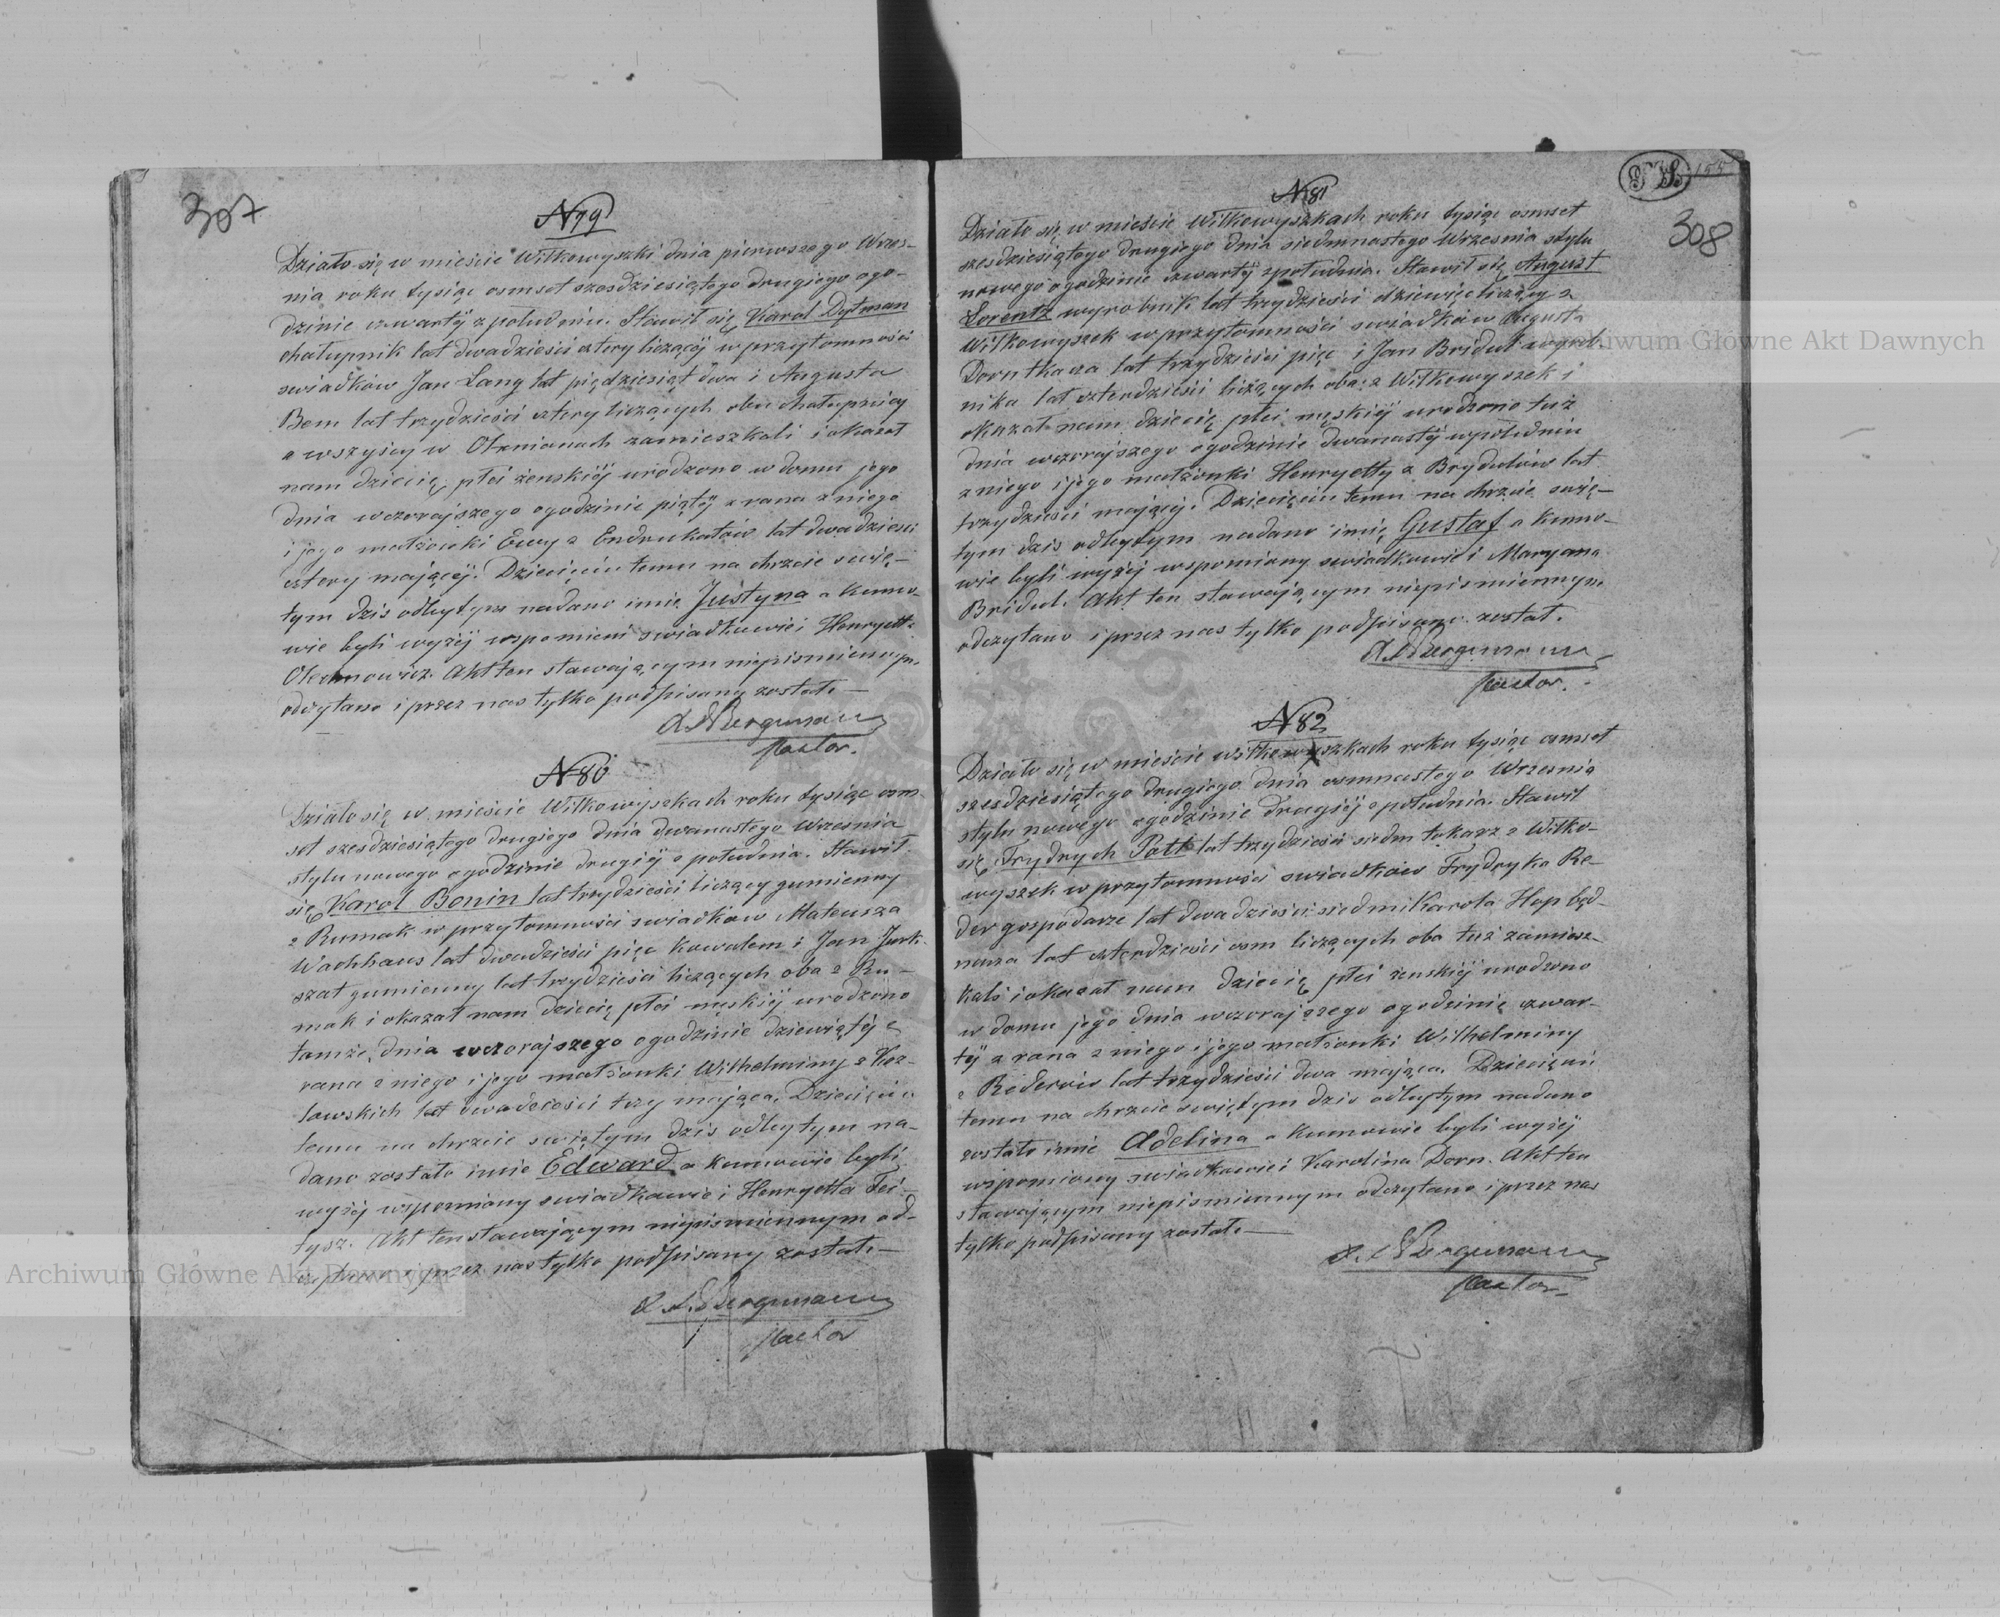 307
N 79
Działo się w mieście Wiłkowyszki dnia pierwszego Wrzes-
nia roku tysiąc osmset szesdziesiątego drugiego ogo-
dzinie czwartÿ z południa. Stawił się Karol Dytman
chałupnik lat dwadzieści cztery liczącÿ w przytomności
swiadków Jan Lang lat pięździesiąt dwa i Augusta
Bem lat trzydzieści cztery liczących obu chałupnicy
a wszyscy w zamieszkali i okazał
nam dziecię płci żenskiÿ urodzone w domu jego
dnia wczorajszego ogodzinie piątÿ z rana z niego
i jego małżonki Ewy z Endrukatów lat dwadzieści
cztery mającÿ. Dziecięciu temu na chrzcie świę-
tym dzis odbytym nadano imie Justyna a kumo-
wie byli wyżÿ wspomieni swiadkowie i Henryetta
Olechnowicz. Akt ten stawającym niepismiennym
odczytano i przez nas tylko podpisany został. —
Bergmann
Pastor.
N 80
Działo się w mieście Wiłkowyszkach roku tysiąc osm-
set szesdziesiątego drugiego dnia dwunastego Wrzesnia
stylu nowego ogodzinie drugiÿ z południa. Stawił
się Karol Bonin lat trzydzieści liczący gumienny
z Rumak w przytomności swiadków Mateusza
Wachhaus lat dwadzieści pięc kowalem i Jan Jurk-
szat gumienny lat trzydzieści liczących oba z Ru-
mak i okazał nam dziecię płci męskiÿ urodzone
tamże, dnia wczorajszego ogodzinie dziewiątÿ z
rana z niego i jego małżonki Wilhelminy z Koz-
lowskich lat dwadzieści trzy mająca. Dziecięciu
temu na chrzcie świętym dzis odbytym na-
dano zostało imie Edward a kumowie byli
wyżÿ wspomniany swiadkowie i Henryetta Fei-
tysz. Akt ten stawającym niepismiennym od-
czytano i przez nas tylko podpisany został. —
Bergmann
Pastor
155
308
N 81
Działo się w mieście Wiłkowyszkach roku tysiąc osmset
szesdziesiątego drugiego dnia siedmnastego Wrzesnia stylu
nowego ogodzinie czwartÿ zpołudnia. Stawił się August
Lorentz wyrobnik lat trzydzieści dziewięc liczący z
Wiłkowyszek w przytomności swiadków Augusta
Dorn tkacza lat trzydzieści pięc i Jan Bridul wyrob-
nika lat czterdzieści liczących oba z Wiłkowyszek i
okazał nam dziecię płci męskiÿ urodzone tuż
dnia wczorajszego ogodzinie dwunastÿ wpołudniu
z niego i jego małżonki Henryetty z Brydulów lat
trzydzieści mającÿ. Dziecięciu temu na chrzcie świę-
tym dzis odbytym nadano imię Gustaf a kumo-
wie byli wyżÿ wspomniany swiadkowie i Maryana
Bridul. Akt ten stawającym niepismiennym
odczytano i przez nas tylko podpisany został.
Bergmann
Pastor.
N 82
Działo się w mieście Wiłkowyszkach roku tysiąc osmset
szesdziesiątego drugiego dnia osmnastego Wrzesnia
stylu nowego ogodzinie drugiÿ z południa. Stawił
się Frydrych Patt lat trzydzieści siedm tokarz z Wiłko-
wyszek w przytomności swiadków Frydryka Re-
der gospodarz lat dwadzieści siedm i Karola Hop będ-
narza lat czterdzieści osm liczących oba tuż zamiesz-
kali i okazał nam dziecię płci żenskiÿ urodzono
w domu jego dnia wczorajszego ogodzinię czwar-
tÿ z rana z niego i jego małżonki Wilhelminy
z Rederów lat trzydzieści dwa mająca. Dziecięciu
temu na chrzcie świętym dzis odbytym nadano
zostało imie Adelina a kumowie byli wyżÿ
wspomniony swiadkowie i Karolina Dorn. Akt ten
stawającym niepismiennym odczytano i przez nas
tylko podpisany został. —
Bergmann
Pastor.
Archiwum Główne Akt Dawnych
Archiwum Główne Akt Dawnych